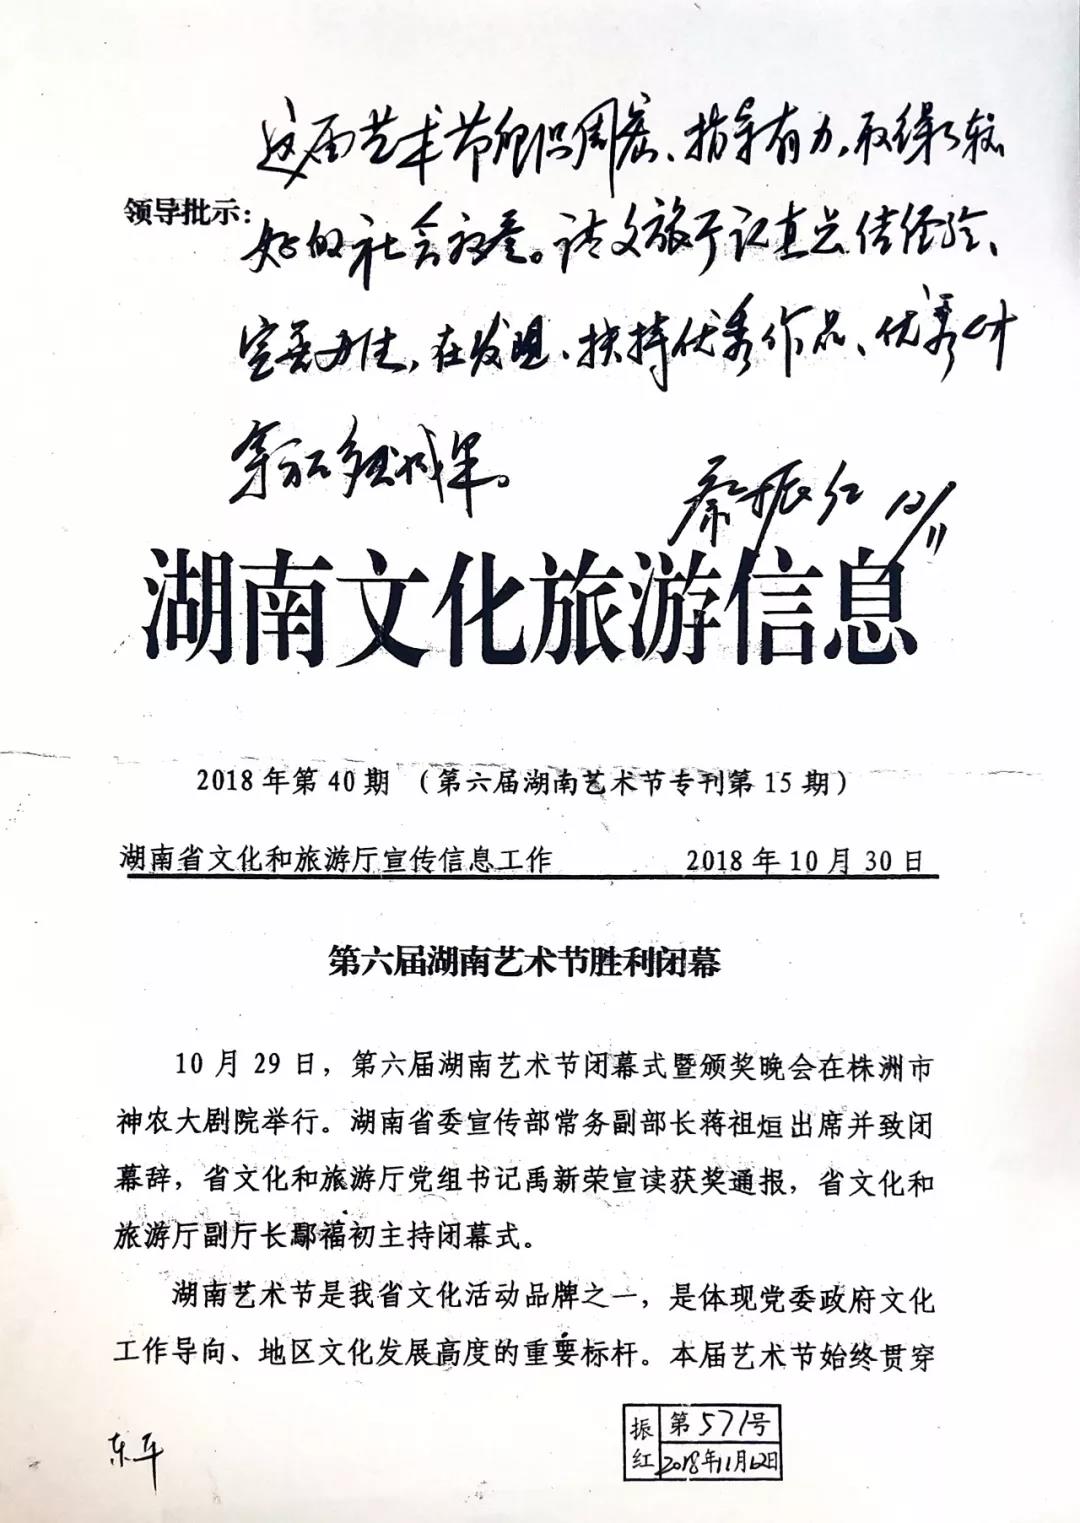 这届艺术节组织周密、指导有力，取得了较
领导批示：
好的社会效益。请文旅厅认真总结经验、
完善办法，在发现、扶持优秀作品、优秀人才
等方面多出成果。
蔡振红 12/11
湖南文化旅游信息
2018年第40期 （第六届湖南艺术节专刊第15期）
湖南省文化和旅游厅宣传信息工作 2018年10月30日
第六届湖南艺术节胜利闭幕
10月29日，第六届湖南艺术节闭幕式暨颁奖晚会在株洲市
神农大剧院举行。湖南省委宣传部常务副部长蒋祖烜出席并致闭
幕辞，省文化和旅游厅党组书记禹新荣宣读获奖通报，省文化和
旅游厅副厅长鄢福初主持闭幕式。
湖南艺术节是我省文化活动品牌之一，是体现党委政府文化
工作导向、地区文化发展高度的重要标杆。本届艺术节始终贯穿
振红 第571号
2018年11月12日